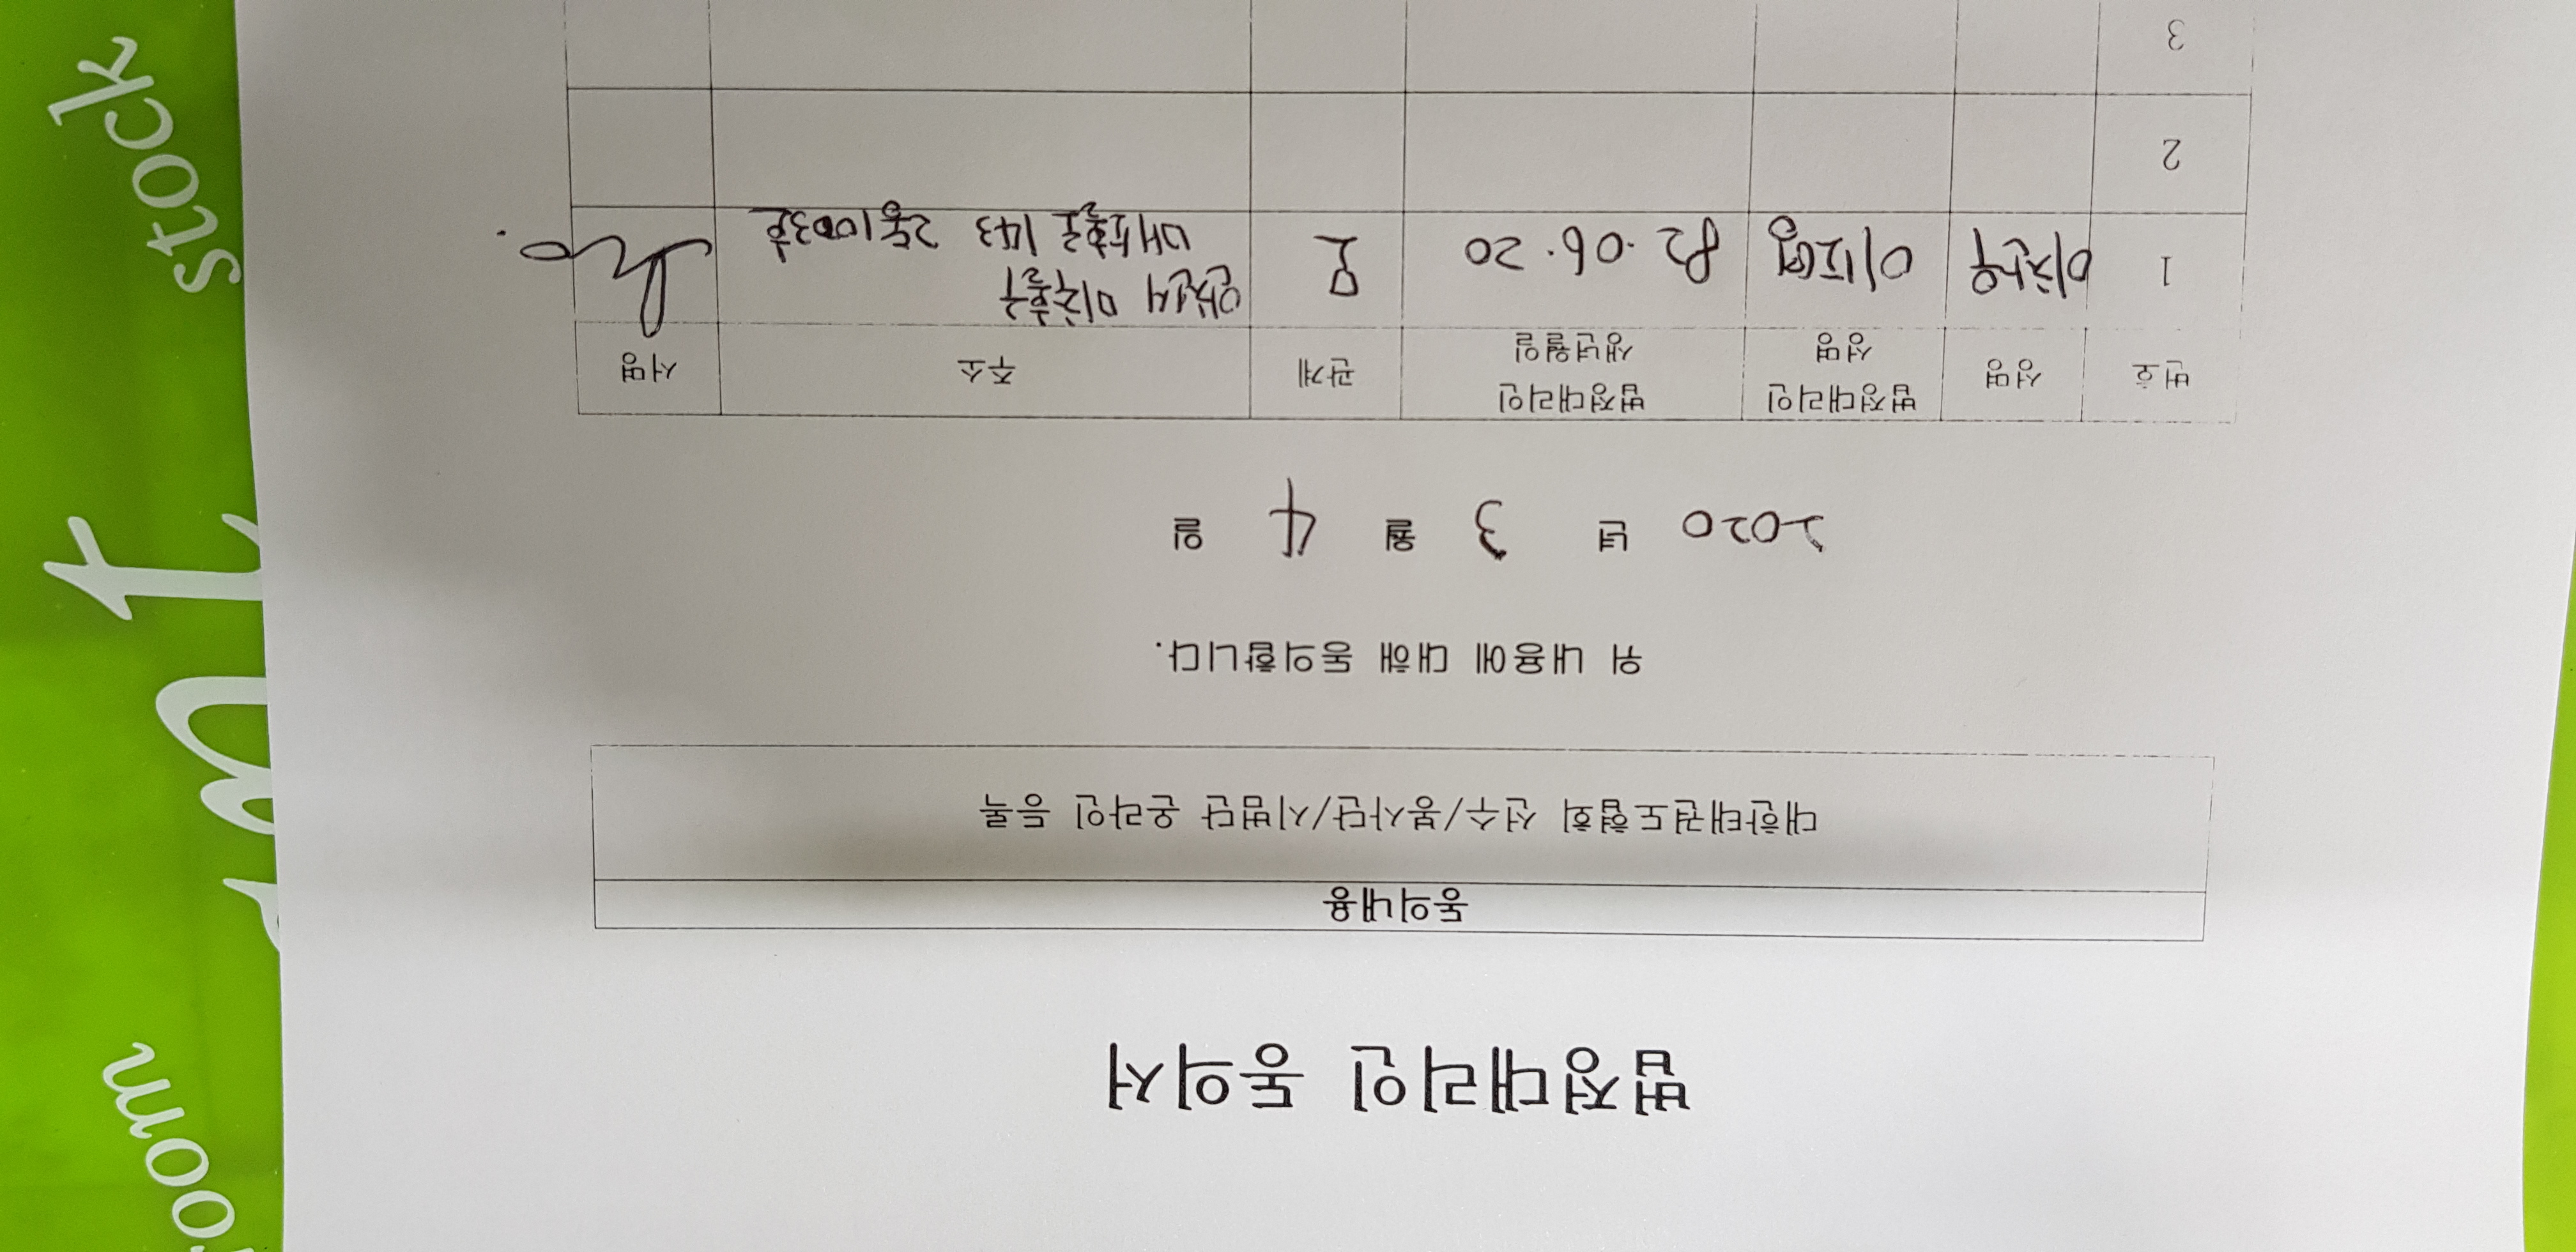 법정대리인 동의서
동의내용
대한태권도협회 선수/봉사단/시범단 온라인 등록
위 내용에 대해 동의합니다.
2020 년 3 월 4 일
번호 성명 법정대리인 성명 법정대리인 생년월일 관계 주소 서명
1 이찬우 이도영 82.06.20 모 안산시 미추홀구
매소홀로 143 2동1003호
2
3
stock
oom